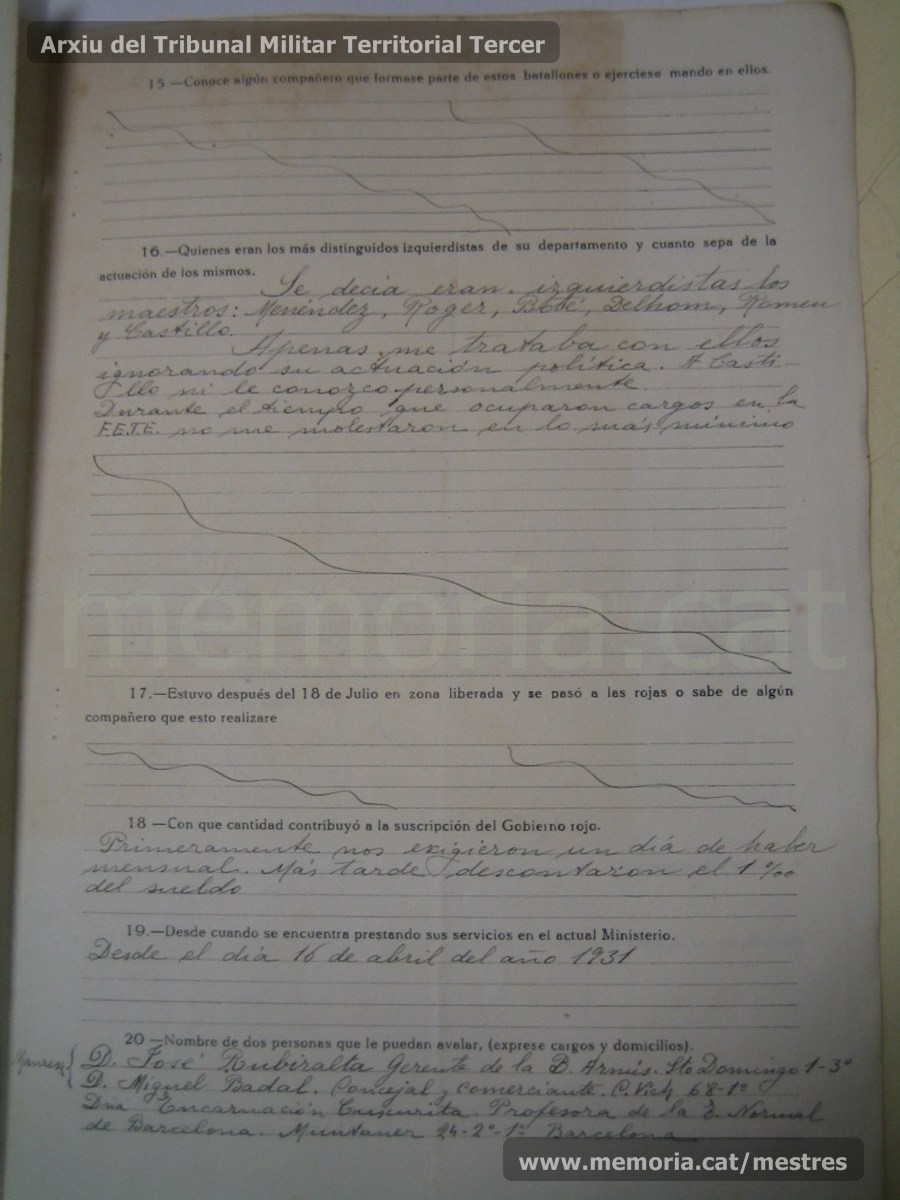 Arxiu del Tribunal Militar Territorial Tercer
15 —Conoce algún compañero que formase parte de estos batallones o ejerciese mando en ellos.
16.—Quienes eran los más distinguidos izquierdistas de su departamento y cuanto sepa de la
actuación de los mismos.
Se decía eran izquierdistas los
maestros: Menéndez, Roger, Boté, Delhom, Romeu
y Castillo.
Apenas me trataba con ellos
ignorando su actuación política. A Casti-
llo ni le conozco personalmente.
Durante el tiempo que ocuparon cargos en la
F.E.T.E. no me molestaron en lo más mínimo
memoria.cat
17.—Estuvo después del 18 de Julio en zona liberada y se pasó a las rojas o sabe de algún
compañero que esto realizare
18 —Con que cantidad contribuyó a la suscripción del Gobierno rojo.
Primeramente nos exigieron un día de haber
mensual. Más tarde descontaron el 1 %
del sueldo
19.—Desde cuando se encuentra prestando sus servicios en el actual Ministerio.
Desde el día 16 de abril del año 1931
20 —Nombre de dos personas que le puedan avalar, (exprese cargos y domicilios).
Manresa { D. José Rubiralta Gerente de la B. Arnús. Sto Domingo 1-3º
D. Miguel Badal. Concejal y comerciante. C. Vich 68-1º
Dña Encarnación Profesora de la E. Normal
de Barcelona. Muntaner 24-2º-1ª Barcelona
www.memoria.cat/mestres